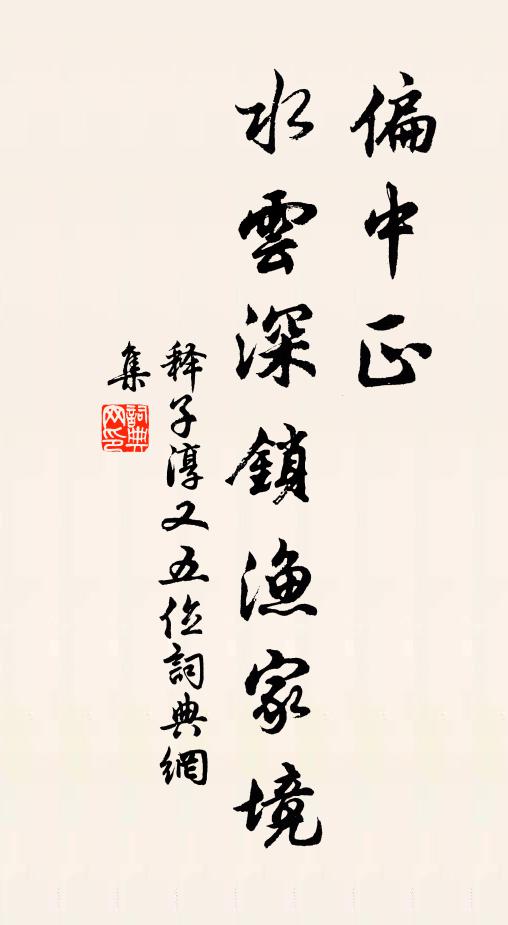 偏中正
水雲深鎖漁家境
释子淳又五位詞典網
集
詞典
网印